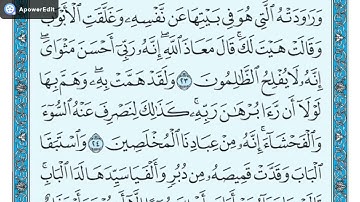 ApowerEdit
وَرَٰوَدَتْهُ ٱلَّتِى هُوَ فِى بَيْتِهَا عَن نَّفْسِهِۦ وَغَلَّقَتِ ٱلْأَبْوَٰبَ
وَقَالَتْ هَيْتَ لَكَ ۚ قَالَ مَعَاذَ ٱللَّهِ ۖ إِنَّهُۥ رَبِّىٓ أَحْسَنَ مَثْوَاىَ ۖ
إِنَّهُۥ لَا يُفْلِحُ ٱلظَّٰلِمُونَ ٢٣ وَلَقَدْ هَمَّتْ بِهِۦ ۖ وَهَمَّ بِهَا
لَوْلَآ أَن رَّءَا بُرْهَٰنَ رَبِّهِۦ ۚ كَذَٰلِكَ لِنَصْرِفَ عَنْهُ ٱلسُّوٓءَ
وَٱلْفَحْشَآءَ ۚ إِنَّهُۥ مِنْ عِبَادِنَا ٱلْمُخْلَصِينَ ٢٤ وَٱسْتَبَقَا
ٱلْبَابَ وَقَدَّتْ قَمِيصَهُۥ مِن دُبُرٍ وَأَلْفَيَا سَيِّدَهَا لَدَا ٱلْبَابِ ۚ